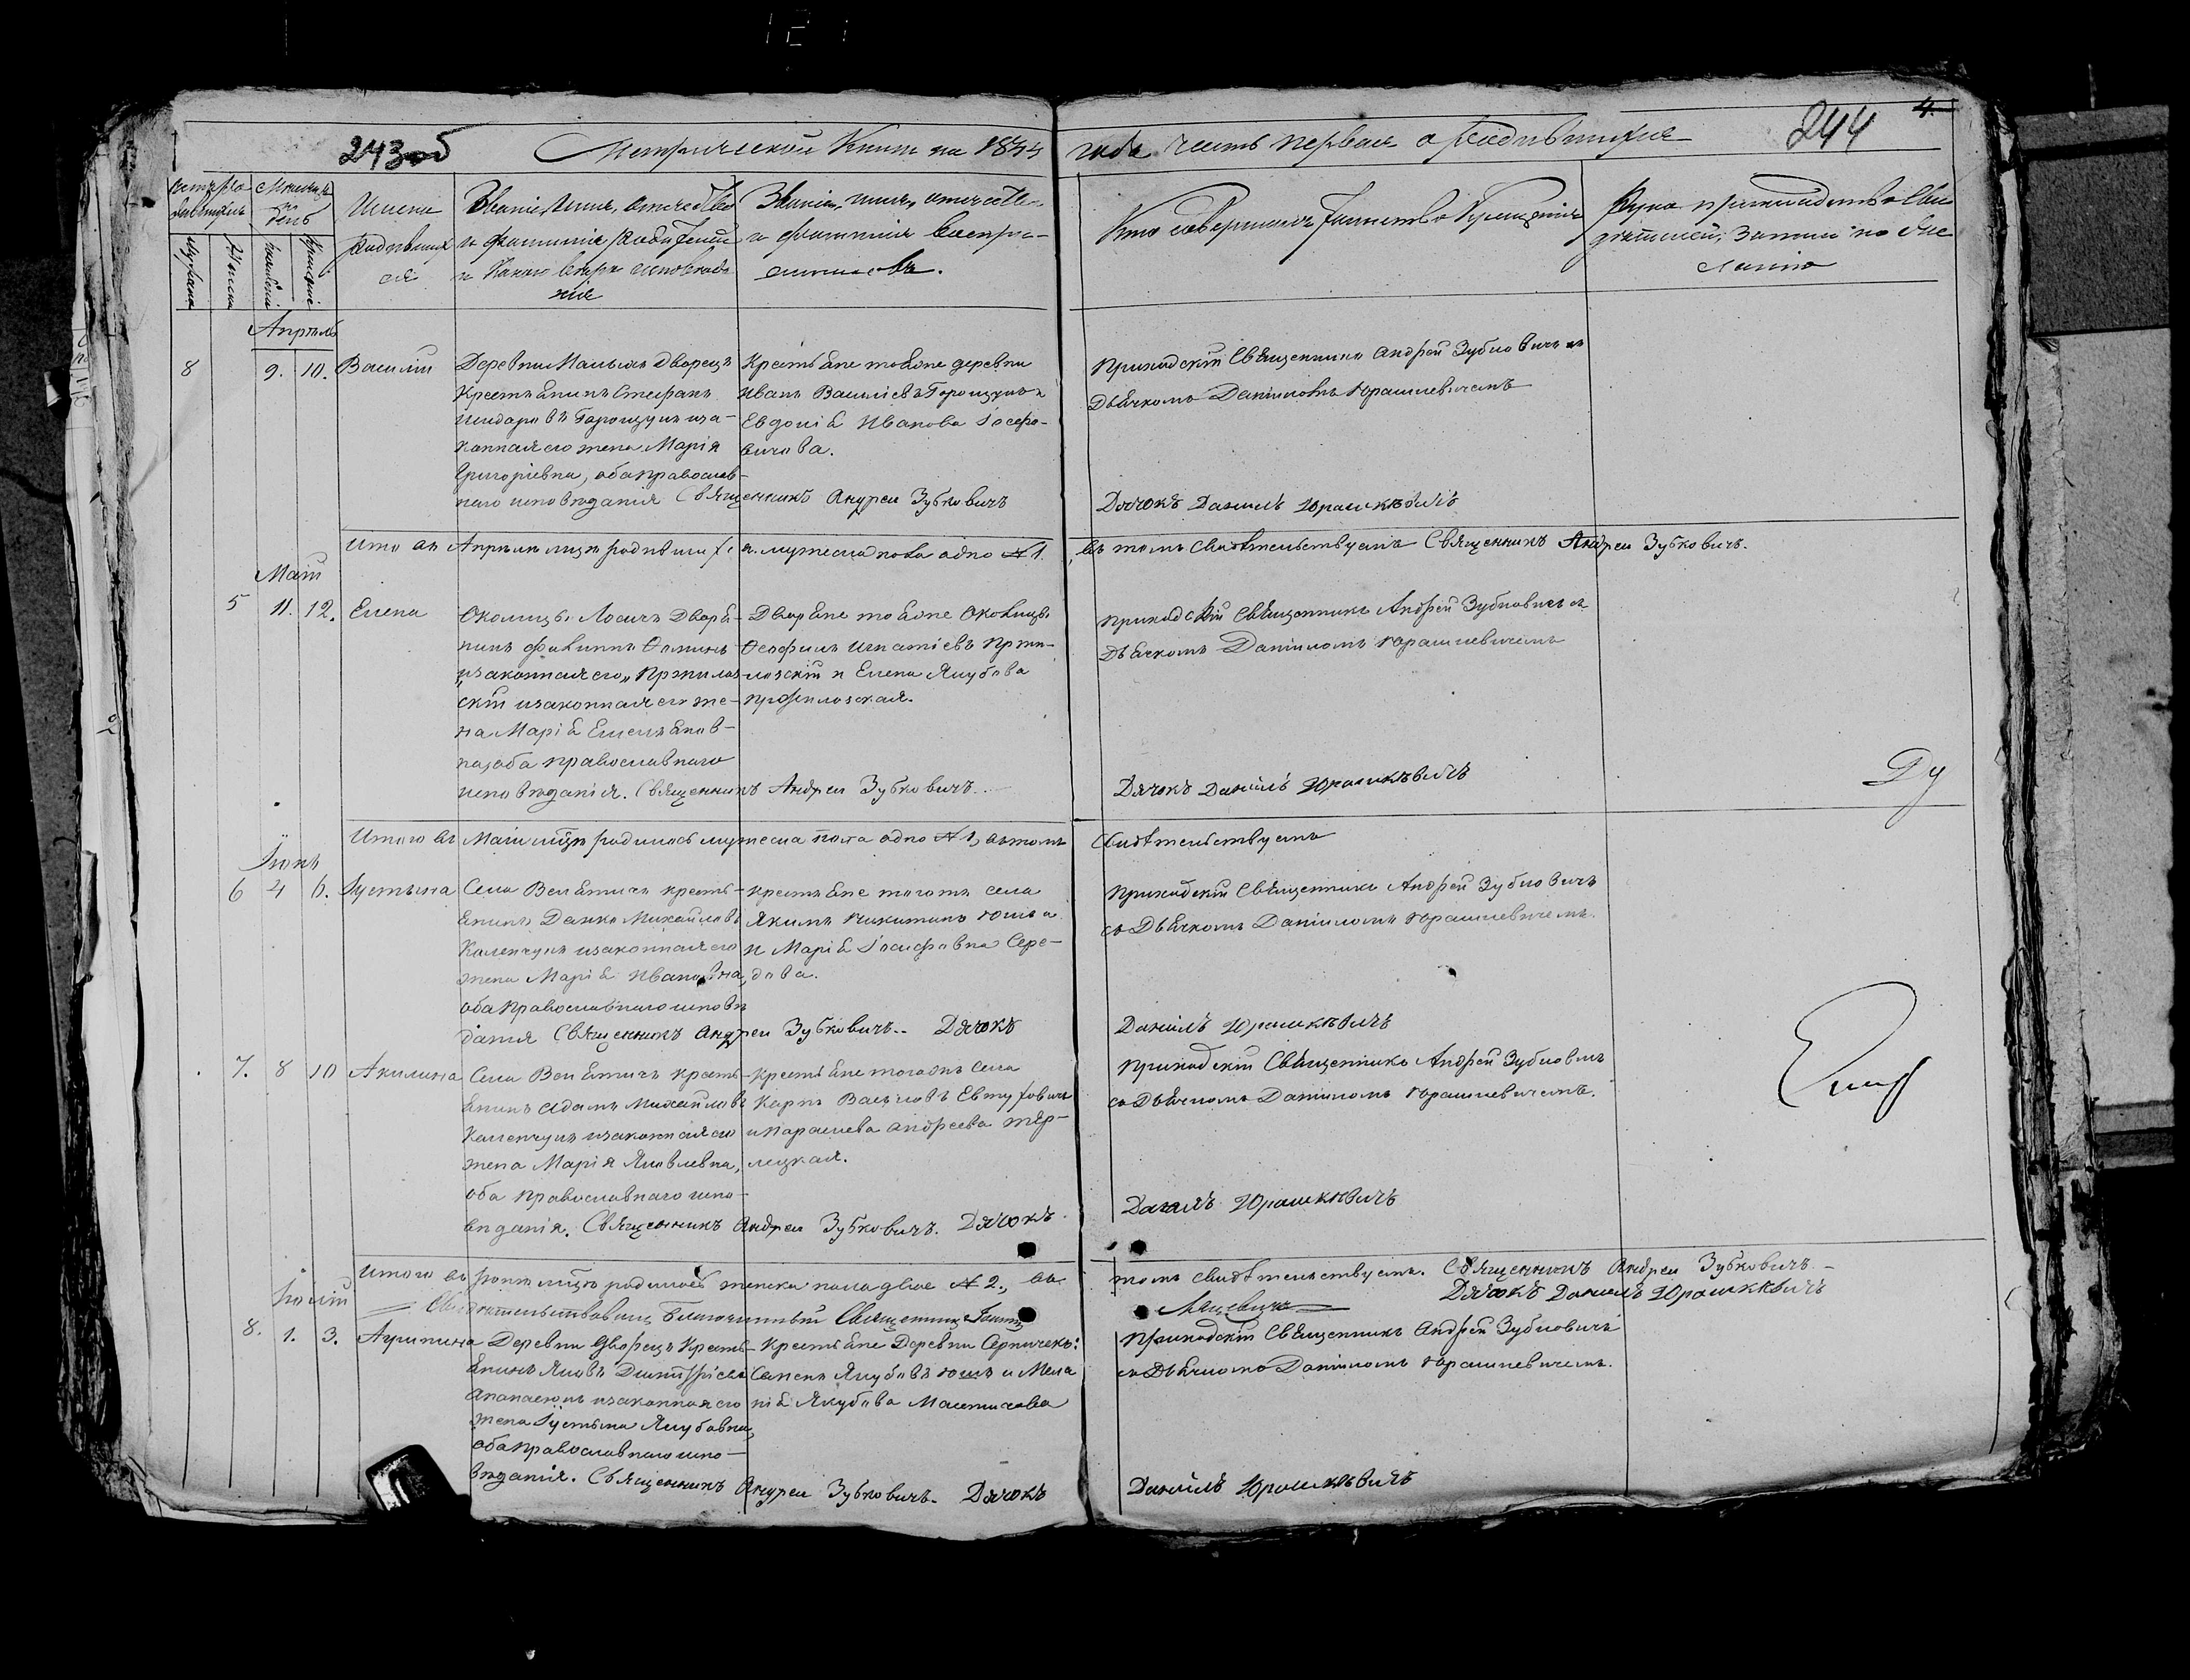 243 об
Метрической Книги на 1844
года часть первая о родившихся
244
4
Месяцъ и день
Мужска
Женска
рожденія
крещенія
Имена родившихся
Званіе, Имя, отчество
и фамилія родителей
и какого вѣроисповѣда
нія
Званіе, имя, отчество
и фамилія воспрі-
емниковъ.
Кто совершалъ таинство Крещенія
Рука прикладство Сви
дѣтелей, записи по
желанію
Апрѣль
8 9. 10. Василій
Деревни Дворецъ
Крестьянинъ Стефанъ
Горощукъ иза-
конная его жена Марія
Григоріевна, оба православ-
наго исповѣданія Священникъ Андрей Зубковичъ
Крестьяне тоЂоже деревни
Иванъ Василіевъ Горощукъ и
Евдокія Иванова Іосефо-
вичова.
Приходскій Священникъ Андрей Зубковичъ съ
Дьячкомъ Даніиломъ Юрашкевичемъ
Дячокъ Даніилъ Юрашкѣвичъ
Итого въ Апрѣлѣ мцѣ родившихся мужеска пола одно № 1.
въ томъ свидѣтельствуемъ Священникъ Андрей Зубковичъ.
Маій
5 11. 12. Елена
Околицы Лосичъ Дворя-
нинъ Филиппъ Ѳоминъ
„изаконная его„ Пржилоз-
скій изаконная его же-
на Марія Емельянов-
на, оба православнаго
исповѣданія. Священникъ Андрей Зубковичъ.
Дворяне тояже околицы
Ѳеофилъ Игнатіевъ Пржи-
лозскій и Елена Якубова
Пржилозская.
Приходскій Священникъ Андрей Зубковичъ съ
Дьячкомъ Даніиломъ Юрашкевичемъ
Дячокъ Даніилъ Юрашкѣвичъ
Ду
Итого въ Маіи мцѣ родилось мужеска пола одно № 1, вътомъ
Свидѣтельствуемъ
Іюнь
6 4 6. Іустина
Села Велятичъ кресть-
янинъ Данко Михайловъ
Каленчукъ изаконная его
жена Марія Ивановна,
оба православнаго исповѣ
данія Священникъ Андрей Зубковичъ.. Дячокъ
крестьяне тогожъ села
Якимъ Никитинъ Юшъ
и Марія Іосифовна Сере-
дова.
Приходскій Священникъ Андрей Зубковичъ
съ Дьячкомъ Даніиломъ Юрашкевичемъ.
Даніилъ Юрашкѣвичъ
7. 8 10 Акилина
Села Велятичъ кресть-
янинъ Адамъ Михайловъ
Каленчукъ изаконная его
жена Марія Яковлевна,
оба православнаго испо-
вѣданія. Священникъ Андрей Зубковичъ. Дячокъ
крестьяне тогожъ села
Карпъ Васильовъ Евтуховичъ
и Парасцева Андреева Тер-
лецкая.
Приходскій Священникъ Андрей Зубковичъ
съ Дьячкомъ Даніиломъ Юрашкевичемъ.
Даніилъ Юрашкѣвичъ
Итого въ Іюнѣ мцѣ родилось женска пола двое № 2., въ
томъ свидѣтельствуемъ. Священникъ Андрей Зубковичъ.
Дячокъ Даніилъ Юрашкѣвичъ
Свидѣтельствовалъ Благочинный Священникъ
Іюлій
8. 1. 3. Агрипина
Деревни Дворецъ Кресть-
янинъ Яковъ Димитріевъ
Апанасюкъ изаконная его
жена Іустина Якубовна,
оба православнаго испо-
вѣданія. Священникъ Андрей Зубковичъ. Дячокъ
Крестьяне Деревни
Семенъ Якубовъ Юшъ и Мела
нія Якубова
Приходскій Священникъ Андрей Зубковичъ
съ Дьячкомъ Даніиломъ Юрашкевичемъ.
Даніилъ Юрашкѣвичъ